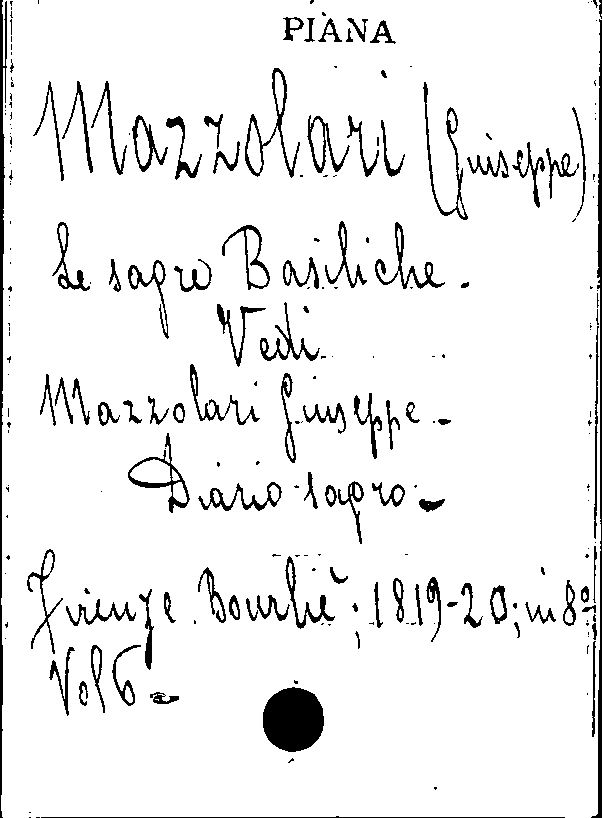 PIANA
Mazzolari (Giuseppe)
Le sagre Basiliche.
Vedi
Mazzolari Giuseppe.
Diario sagro -
Firenze. Bourlié; 1819-20; in 8º
Vol 6 -